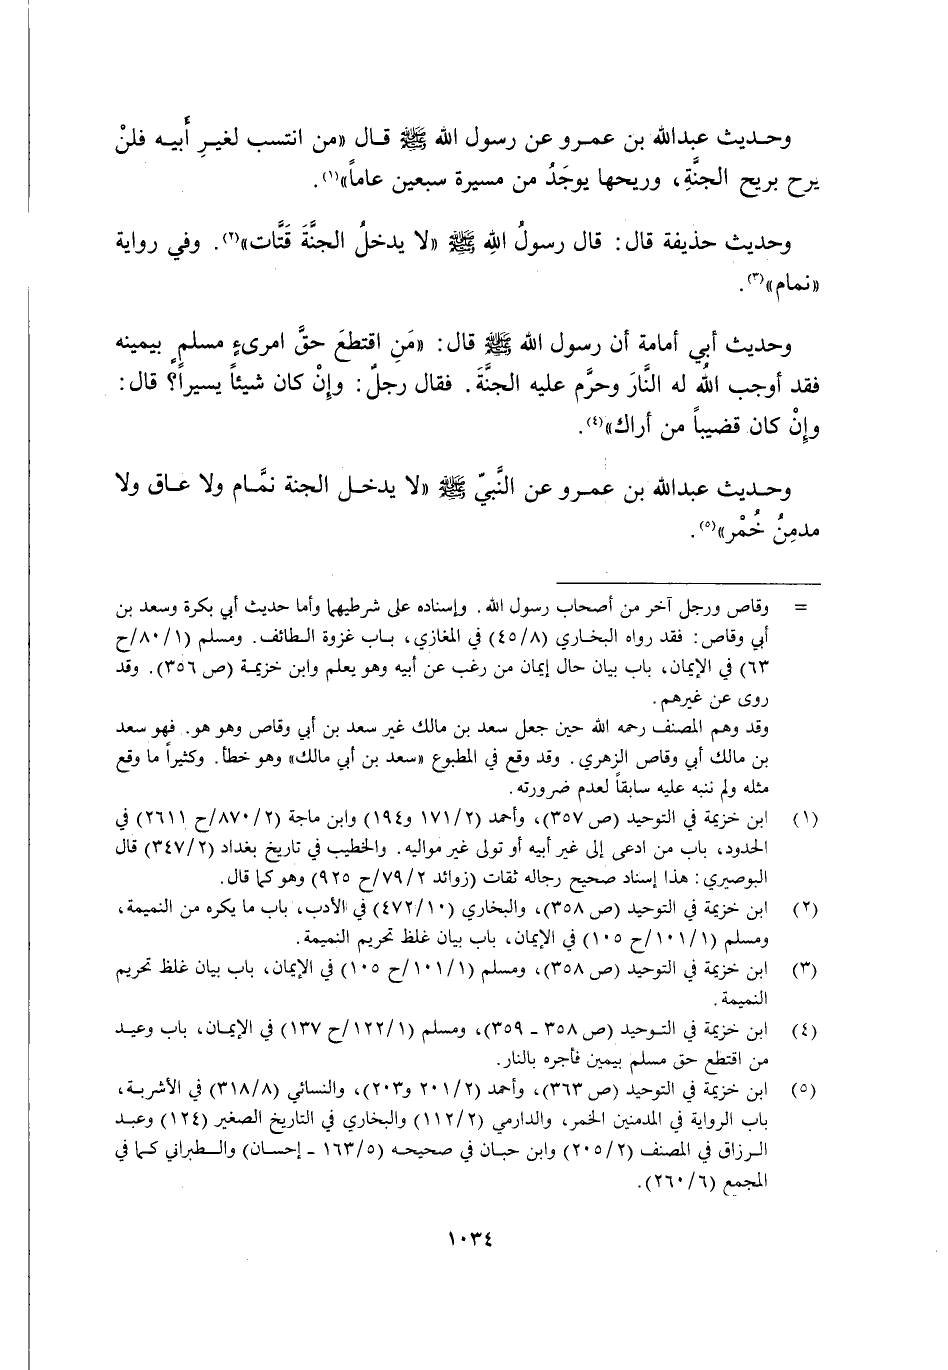 وحـديث عبدالله بن عمـرو عن رسول الله ﷺ قـال «من انتسب لغيـرِ أَبيـه فلنْ
يرح بريح الجنَّةِ، وريحها يوجَدُ من مسيرة سبعين عاماً»(١).
وحديث حذيفة قال: قال رسولُ اللهِ ﷺ «لا يدخلُ الجنَّةَ قَتَّات»(٢). وفي رواية
«نمام»(٣).
وحديث أبي أمامة أن رسول الله ﷺ قال: «مَنِ اقتطعَ حقَّ امرىءٍ مسلمٍ بيمينه
فقد أوجب اللهُ له النَّارَ وحرَّم عليه الجنَّةَ. فقال رجلٌ: وإنْ كان شيئاً يسيراً؟ قال:
وإنْ كان قضيباً من أراك»(٤).
وحـديث عبدالله بن عمـرو عن النَّبيّ ﷺ «لا يدخـل الجنة نمَّـام ولا عـاق ولا
مدمِنُ خُمْر»(٥).
= وقاص ورجل آخر من أصحاب رسول الله. وإسناده على شرطيهما وأما حديث أبي بكرة وسعد بن
أبي وقاص: فقد رواه البخاري (٤٥/٨) في المغازي، بـاب غزوة الـطائف. ومسلم (٨٠/١/ح
٦٣) في الإيمان، باب بيان حال إيمان من رغب عن أبيه وهو يعلم وابن خزيمـة (ص ٣٥٦). وقد
روى عن غيرهم.
وقد وهم المصنف رحمه الله حين جعل سعد بن مالك غير سعد بن أبي وقاص وهو هو. فهو سعد
بن مالك أبي وقاص الزهري. وقد وقع في المطبوع «سعد بن أبي مالك» وهو خطأ. وكثيراً ما وقع
مثله ولم ننبه عليه سابقاً لعدم ضرورته.
(١) ابن خزيمة في التوحيد (ص ٣٥٧)، وأحمد (١٧١/٢ و١٩٤) وابن ماجة (٨٧٠/٢/ح ٢٦١١) في
الحدود، باب من ادعى إلى غير أبيه أو تولى غير مواليه. والخطيب في تاريخ بغداد (٣٤٧/٢) قال
البوصيري: هذا إسناد صحيح رجاله ثقات (زوائد ٧٩/٢/ح ٩٢٥) وهو كما قال.
(٢) ابن خزيمة في التوحيد (ص ٣٥٨)، والبخاري (٤٧٢/١٠) في الأدب، باب ما يكره من النميمة،
ومسلم (١٠١/١/ح ١٠٥) في الإيمان، باب بيان غلظ تحريم النميمة.
(٣) ابن خزيمة في التوحيد (ص ٣٥٨)، ومسلم (١٠١/١/ح ١٠٥) في الإيمان، باب بيان غلظ تحريم
النميمة.
(٤) ابن خزيمة في التـوحيد (ص ٣٥٨ - ٣٥٩)، ومسلم (١٢٢/١/ح ١٣٧) في الإيمـان، باب وعيـد
من اقتطع حق مسلم بيمين فأجره بالنار.
(٥) ابن خزيمة في التوحيد (ص ٣٦٣)، وأحمد (٢٠١/٢ و٢٠٣)، والنسائي (٣١٨/٨) في الأشربـة،
باب الرواية في المدمنين الخمر، والدارمي (١١٢/٢) والبخاري في التاريخ الصغير (١٢٤) وعبـد
الـرزاق في المصنف (٢٠٥/٢) وابن حبـان في صحيحـه (١٦٣/٥ - إحسـان) والـطبراني كـما في
المجمع (٢٦٠/٦).
١٠٣٤